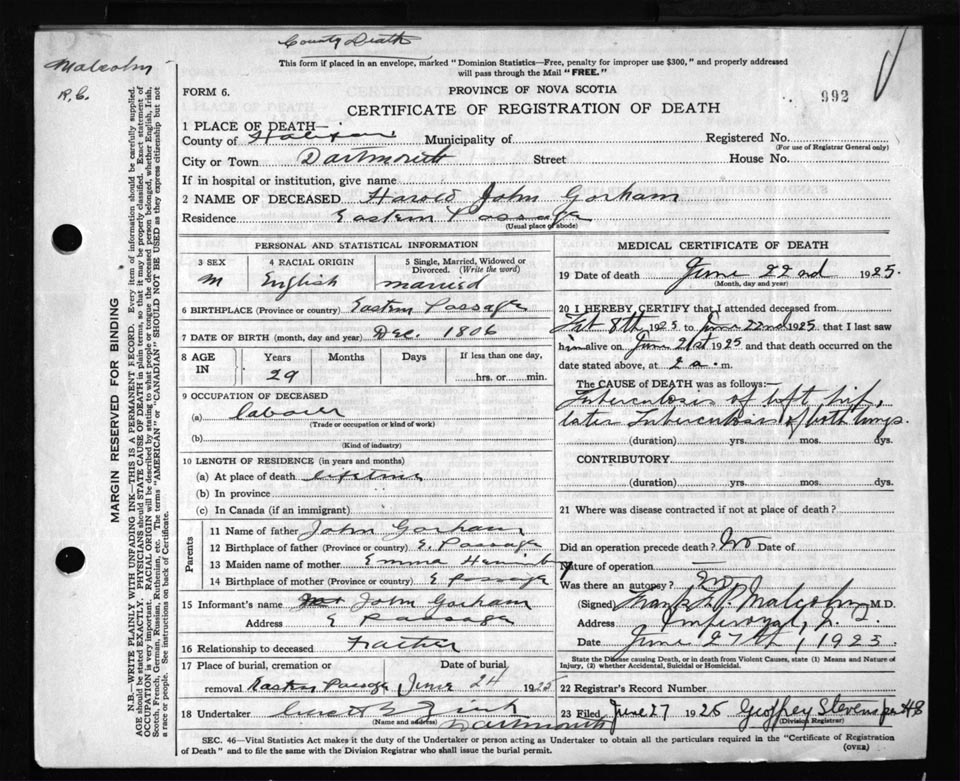 County Death
Malcolm
R.C.
This form if placed in an envelope, marked "Dominion Statistics—Free, penalty for improper use $300," and properly addressed
will pass through the Mail "FREE."
FORM 6.
PROVINCE OF NOVA SCOTIA
992
CERTIFICATE OF REGISTRATION OF DEATH
1 PLACE OF DEATH—
County of Halifax Municipality of
Registered No.
(For use of Registrar General only)
City or Town Dartmouth Street House No.
If in hospital or institution, give name
2 NAME OF DECEASED Harold John Gorham
Residence Eastern Passage
(Usual place of abode)
PERSONAL AND STATISTICAL INFORMATION
3 SEX
M
4 RACIAL ORIGIN
English
5 Single, Married, Widowed or
Divorced. (Write the word)
married
6 BIRTHPLACE (Province or country) Eastern Passage
7 DATE OF BIRTH (month, day and year) Dec. 1806
8 AGE IN
Years Months Days
29
If less than one day,
hrs. or min.
9 OCCUPATION OF DECEASED
(a) labourer
(Trade or occupation or kind of work)
(b)
(Kind of industry)
10 LENGTH OF RESIDENCE (in years and months)
(a) At place of death lifetime
(b) In province
(c) In Canada (if an immigrant)
Parents
11 Name of father John Gorham
12 Birthplace of father (Province or country) E. Passage
13 Maiden name of mother Emma
14 Birthplace of mother (Province or country) E Passage
15 Informant's name John Gorham
Address E Passage
16 Relationship to deceased Father
17 Place of burial, cremation or Date of burial
removal Eastern Passage June 24 1925
18 Undertaker
(Name and address) Dartmouth
MEDICAL CERTIFICATE OF DEATH
19 Date of death June 22nd 1925.
(Month, day and year)
20 I HEREBY CERTIFY that I attended deceased from
Feb 8th 1925 to June 22nd 1925 that I last saw
him alive on June 21st 1925 and that death occurred on
date stated above, at 2 a. m.
The CAUSE of DEATH was as follows:—
Tuberculosis of left hip,
later Tuberculosis of both lungs.
(duration) yrs. mos. dys.
CONTRIBUTORY
(duration) yrs. mos. dys.
21 Where was disease contracted if not at place of death?
Did an operation precede death? No Date of
Nature of operation
Was there an autopsy? No
(Signed) Frank Malcolm M.D.
Address Imperoyal, N.S.
Date June 27th, 1925
State the Disease causing Death, or in death from Violent Causes, state (1) Means and Nature of
Injury, (2) whether Accidental, Suicidal or Homicidal.
22 Registrar's Record Number
23 Filed June 27 1925 Geoffrey Stevens per HS
(Division Registrar)
SEC. 46—Vital Statistics Act makes it the duty of the Undertaker or person acting as Undertaker to obtain all the particulars required in the "Certificate of Registration
of Death" and to file the same with the Division Registrar who shall issue the burial permit.
(OVER)
MARGIN RESERVED FOR BINDING
N.B.—WRITE PLAINLY WITH UNFADING INK—THIS IS A PERMANENT RECORD. Every item of information should be carefully supplied.
AGE should be stated EXACTLY. PHYSICIANS should STATE CAUSE OF DEATH in plain terms, so that it may be properly classified. Exact statement of
OCCUPATION is very important. RACIAL ORIGIN will be described by stating to what people or tongue the deceased person belonged, whether English, Irish,
Scotch, French, German, Russian, Ruthenian, etc. The terms "AMERICAN" or "CANADIAN" SHOULD NOT BE USED as they express citizenship but not
a race or people. See instructions on back of Certificate.